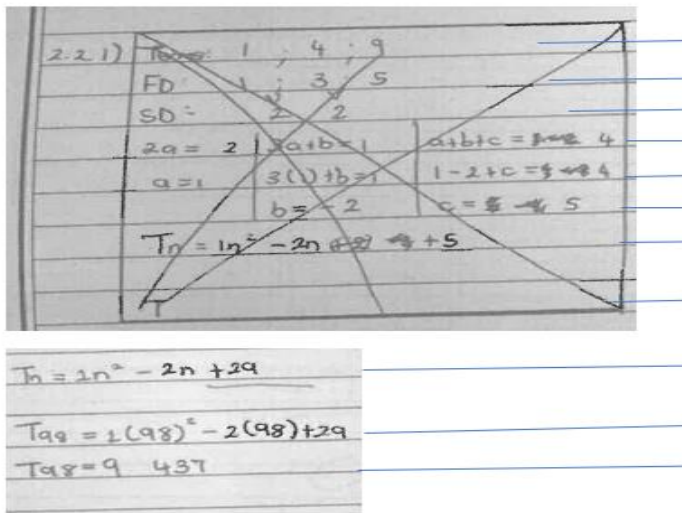 2.2.1) Terms: 1 ; 4 ; 9
FD: 1 ; 3 5
SD: 2 2
2a = 2 3a+b=1 a+b+c = 4
a=1 3(1)+b=1 1-2+c = 4
b=-2 c = 5
Tn = 1n² - 2n + 5
T
Tn = 1n² - 2n + 29
T98 = 1(98)² - 2(98)+29
T98 = 9 437